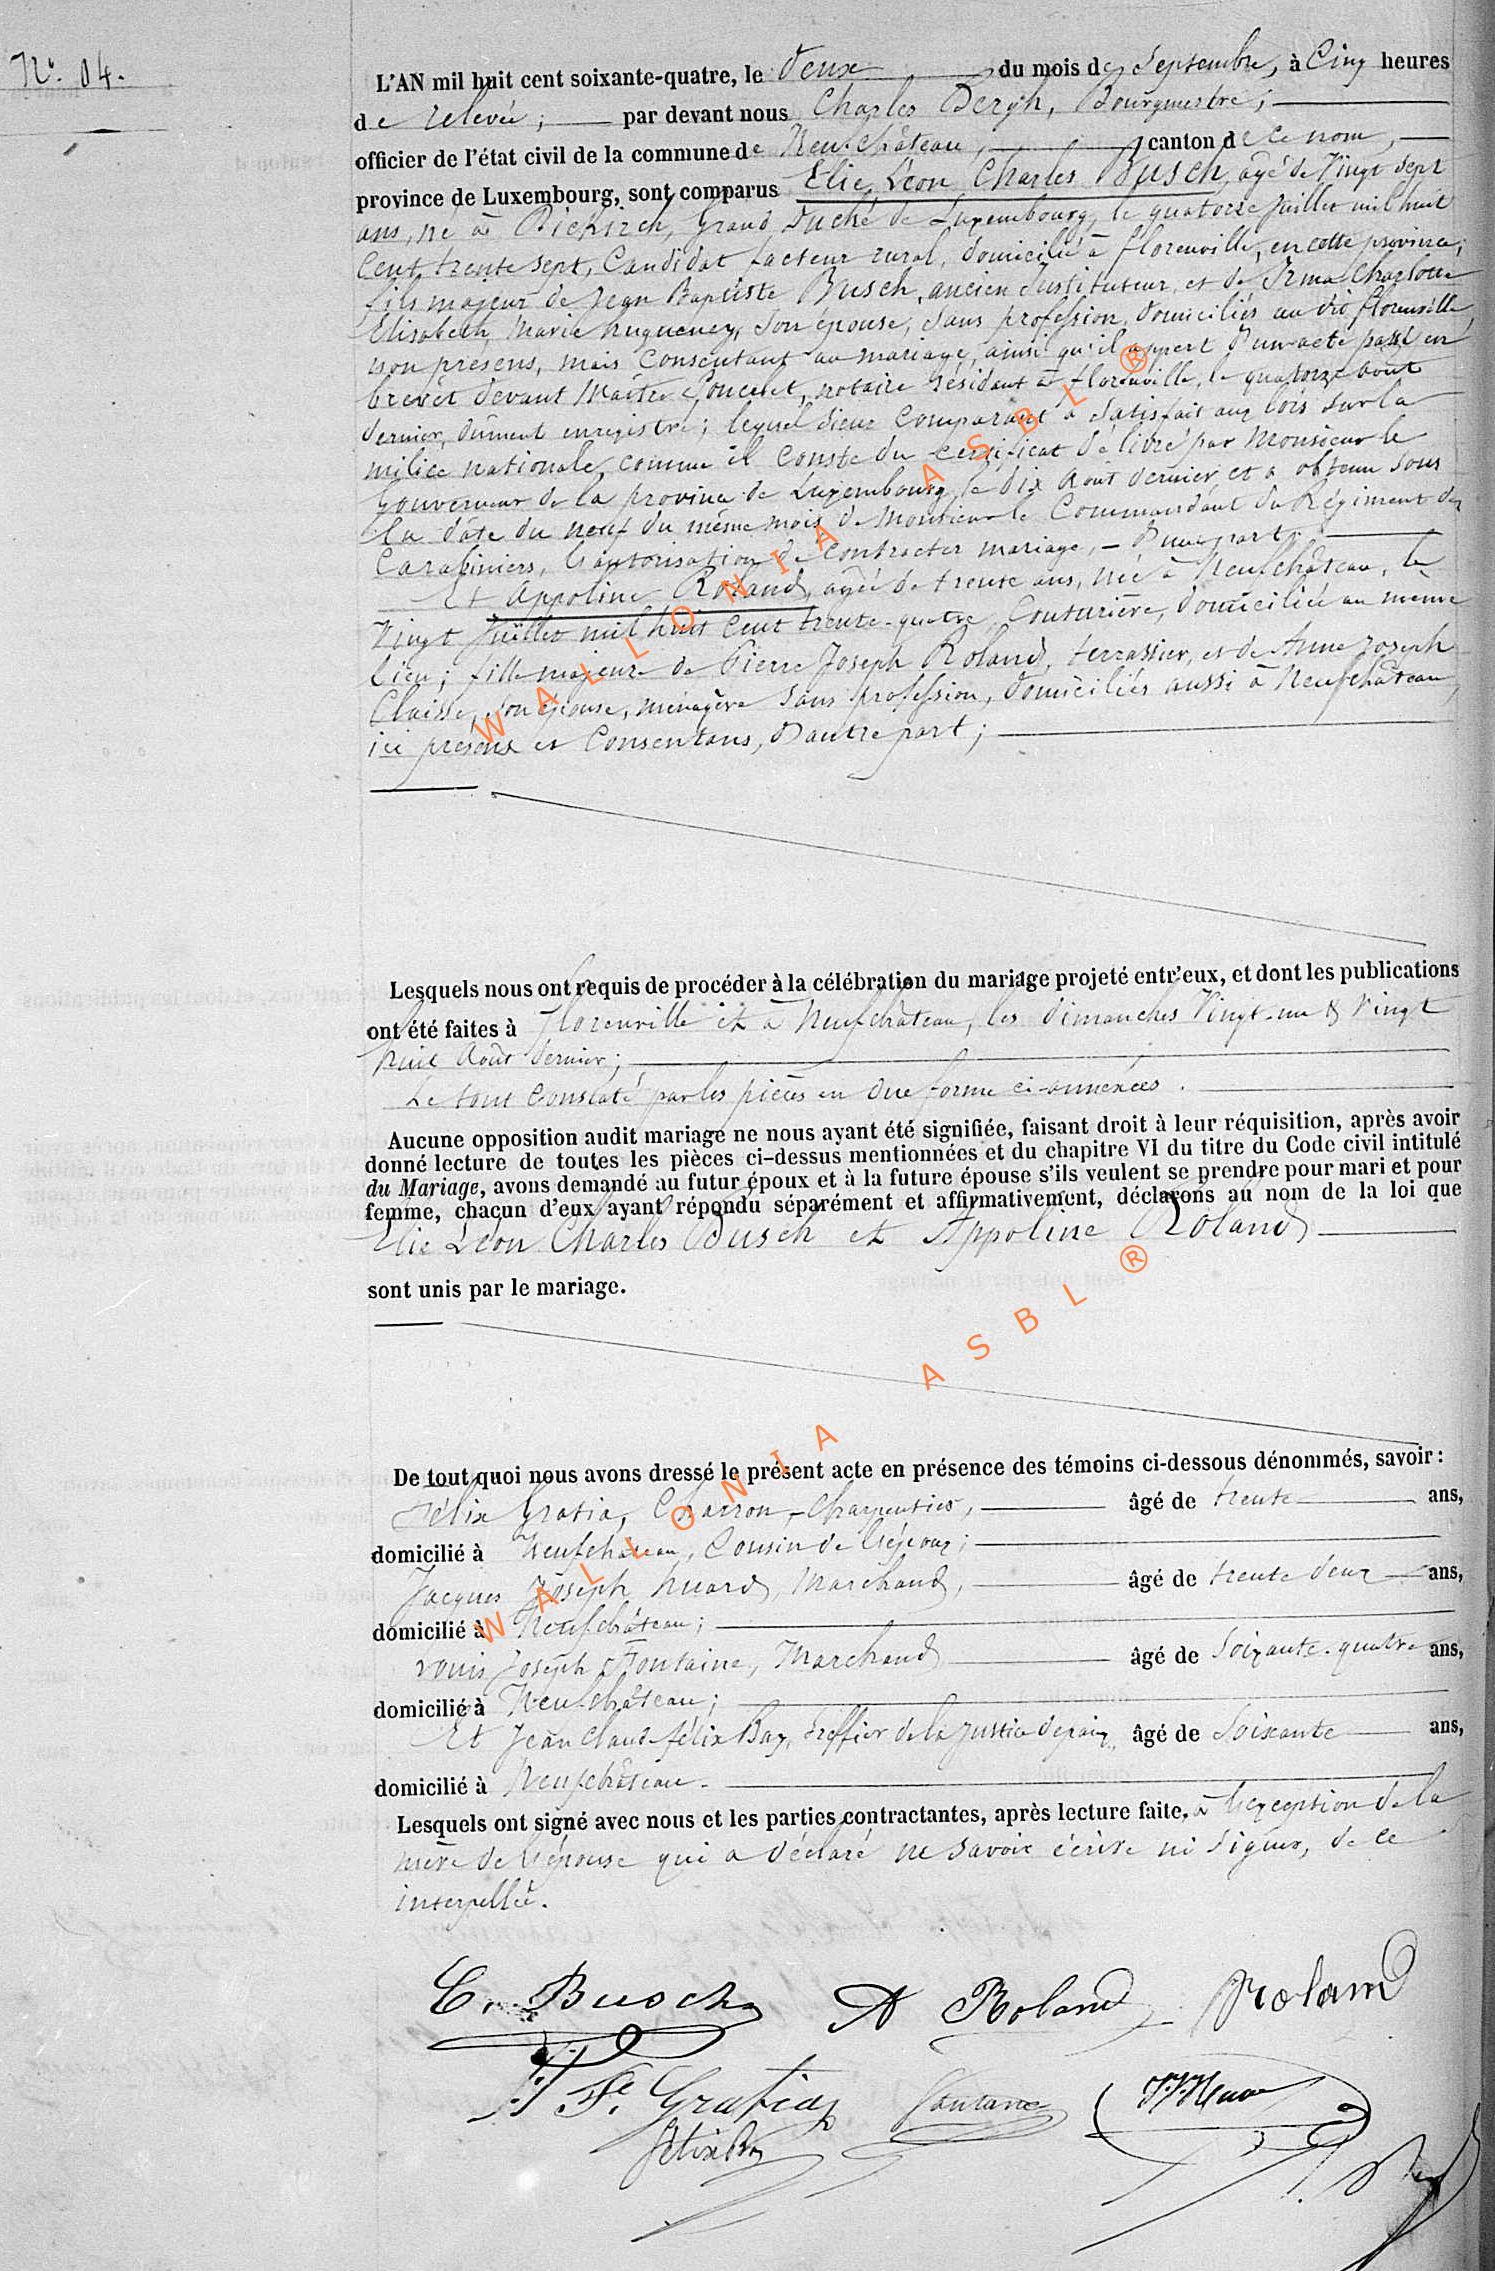 No. 04.
L'AN mil huit cent soixante-quatre, le deux du mois de Septembre, à Cinq heures
de relevée; par devant nous Charles Bergh, Bourgmestre,
officier de l'état civil de la commune de Neufchâteau, canton de ce nom,
province de Luxembourg, sont comparus Elie Léon Charles Busch, âgé de Vingt sept
ans, né à Diekirch, Grand Duché de Luxembourg, le quatorze juillet mil huit
Cent trente sept, Candidat facteur rural, domicilié à florenville, en cette province;
fils majeur de Jean Baptiste Busch, ancien Instituteur, et de Irma Charlotte
Elisabeth Marie hugueney, son épouse, sans profession, domiciliés au dit florenville,
non présens, mais consentant au mariage, ainsi qu'il appert d'un acte passé en
brevêt devant Maître résidant à florenville, le quatorze août
dernier, dûment enregistré; lequel sieur comparant a satisfait aux lois sur la
milice nationale, comme il conste du certificat délivré par Monsieur le
Gouverneur de la province de Luxembourg, le dix Août dernier, et a obtenu sous
la date du neuf du même mois, de Monsieur le Commandant du Régiment des
Carabiniers, l'autorisation de contracter mariage, - d'une part;
Et Appoline Roland, agée de trente ans, née à Neufchâteau, le
Vingt Juillet mil huit cent trente-quatre, Couturière, domiciliée au même
lieu; fille majeure de Pierre Joseph Roland, terrassier, et de Anne Joseph
Claisse, son épouse, ménagère sans profession, domiciliés aussi à Neufchâteau,
ici présens et Consentans, d'autre part;
Lesquels nous ont requis de procéder à la célébration du mariage projeté entr'eux, et dont les publications
ont été faites à florenville et à Neufchâteau, les dimanches Vingt-un & Vingt
huit Août dernier;
Le tout constaté par les pièces en due forme ci-annexées.
Aucune opposition audit mariage ne nous ayant été signifiée, faisant droit à leur réquisition, après avoir
donné lecture de toutes les pièces ci-dessus mentionnées et du chapitre VI du titre du Code civil intitulé
du Mariage, avons demandé au futur époux et à la future épouse s'ils veulent se prendre pour mari et pour
femme, chacun d'eux ayant répondu séparément et affirmativement, déclarons au nom de la loi que
Elie Léon Charles Busch et Appoline Roland
sont unis par le mariage.
De tout quoi nous avons dressé le présent acte en présence des témoins ci-dessous dénommés, savoir :
Félix Gratia, Charron-Charpentier, âgé de trente ans,
domicilié à Neufchâteau, Cousin de l'époux;
Jacques Joseph huard, Marchand, âgé de trente deux ans,
domicilié à Neufchâteau;
Joseph Fontaine, Marchand âgé de Soixante-quatre ans,
domicilié à Neufchâteau;
Et Jean Claude félix Bay, Greffier de la justice de paix, âgé de Soixante ans,
domicilié à Neufchâteau.
Lesquels ont signé avec nous et les parties contractantes, après lecture faite, à l'exception de la
mère de l'épouse qui a déclaré ne savoir écrire ni signer, de ce
interpellée.
C. Busch A Roland Roland
Fx. Gratia Fontaine J J Huard
WALLONIA ASBL ®
WALLONIA ASBL ®